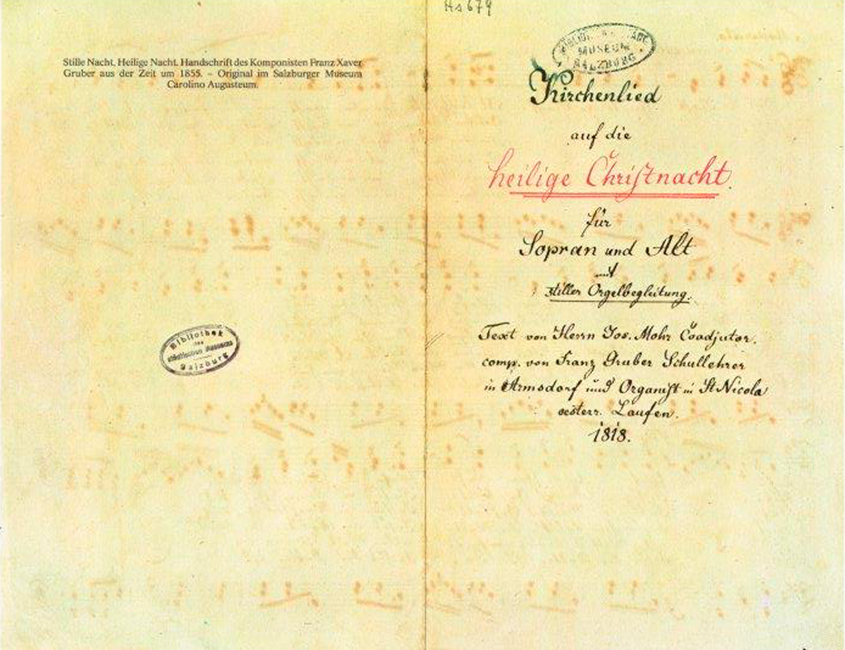 Stille Nacht, Heilige Nacht. Handschrift des Komponisten Franz Xaver
Gruber aus der Zeit um 1855. – Original im Salzburger Museum
Carolino Augusteum.
Bibliothek
des
städtischen Museums
Salzburg
Hs 679
MUSEUM
SALZBURG
Kirchenlied
auf die
heilige Christnacht.
für
Sopran und Alt
mit
stiller Orgelbegleitung.
Text von Herrn Jos. Mohr Coadjutor.
comp. von Franz Gruber Schullehrer
in Arnsdorf und Organist in St Nicola
oesterr. Laufen.
1818.